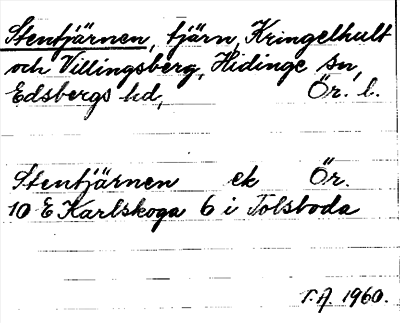 Stentjärnen, tjärn, Kringelhult
och Villingsberg, Hidinge sn,
Edsbergs hd, Ör. l.
Stentjärnen ek Ör.
10 E Karlskoga 6 i Tolsboda
T.A. 1960.